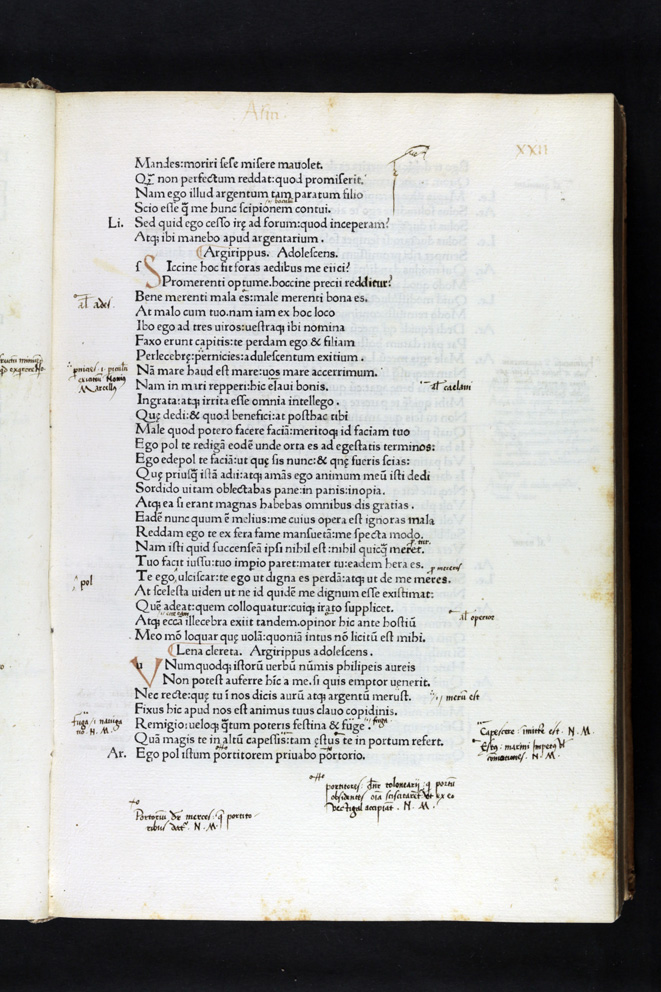 Asin.
XXII
Mandes:moriri sese misere mauolet.
Qꝫ non perfectum reddat:quod promiserit.
Nam ego illud argentum tam paratum filio
Scio esse q̄ me hunc scipionem contui.
Li. Sed quid ego cesso irę ad forum:quod inceperam?
Atqꝫ ibi manebo apud argentarium.
Argirippus. Adolescens.
s SIccine hoc fit foras aedibus me eiici?
Promerenti optume.hoccine precii redditur?
Bene merenti mala es:male merenti bona es.
al̄ ades.
At malo cum tuo.nam iam ex hoc loco
Ibo ego ad tres uiros:uestraqꝫ ibi nomina
Faxo erunt capitis:te perdam ego & filiam
Perlecebrę:pernicies:adulescentum exitium.
Nā mare haud est mare:uos mare accerrimum.
Marcellꝰ
Nam in mari repperi:hic elaui bonis.
al̄ caelaui
Ingrata:atqꝫ irrita esse omnia intellego.
Quę dedi:& quod benefici:at posthac tibi
Male quod potero facere faciā:meritoqꝫ id faciam tuo
Ego pol te redigā eodē unde orta es ad egestatis terminos:
Ego edepol te faciā:ut quę sis nunc:& quę fueris scias:
Quę priusq̄ istā adii:atqꝫ amās ego animum meū isti dedi
Sordido uitam oblectabas pane:in panis:inopia.
Atqꝫ ea si erant magnas habebas omnibus dis gratias.
Eadē nunc quum ē melius:me cuius opera est ignoras mala
Reddam ego te ex fera fame mansuetā:me specta modo.
Nam isti quid succenseā ipsi nihil est:nihil quicq̄ meret.
Tuo facit iussu:tuo impio paret:mater tu:eadem hera es.
Te ego ulciscar:te ego ut digna es perdā:atqꝫ ut de me meres.
pol
p̄ mereris
At scelesta uiden ut ne id quidē me dignum esse existimat:
Quē adeat:quem colloquatur:cuiqꝫ irato supplicet.
Atqꝫ ecca illecebra exiit tandem.opinor hic ante hostiū
al̄ operior
Meo mō loquar quę uolā:quoniā intus nō licitū est mihi.
Lena clereta. Argirippus adolescens.
u VNumquodqꝫ istorū uerbū nūmis philipeis aureis
Non potest auferre hīc a me.si quis emptor uenerit.
Nec recte:quę tu ī nos dicis aurū atqꝫ argentū merust.
merū est
Fixus hic apud nos est animus tuus clauo copidinis.
Remigio:ueloqꝫ q̄tum poteris festina & fuge.
fuga
fuga: i nauiga
nō. N. M.
Quā magis te in altū capessis:tam ęstus te in portum refert.
Capescere: inire est. N. M.
Ar. Ego pol istum portitorem priuabo portorio.
obsidentes
uectigal accipiāt. N. M.